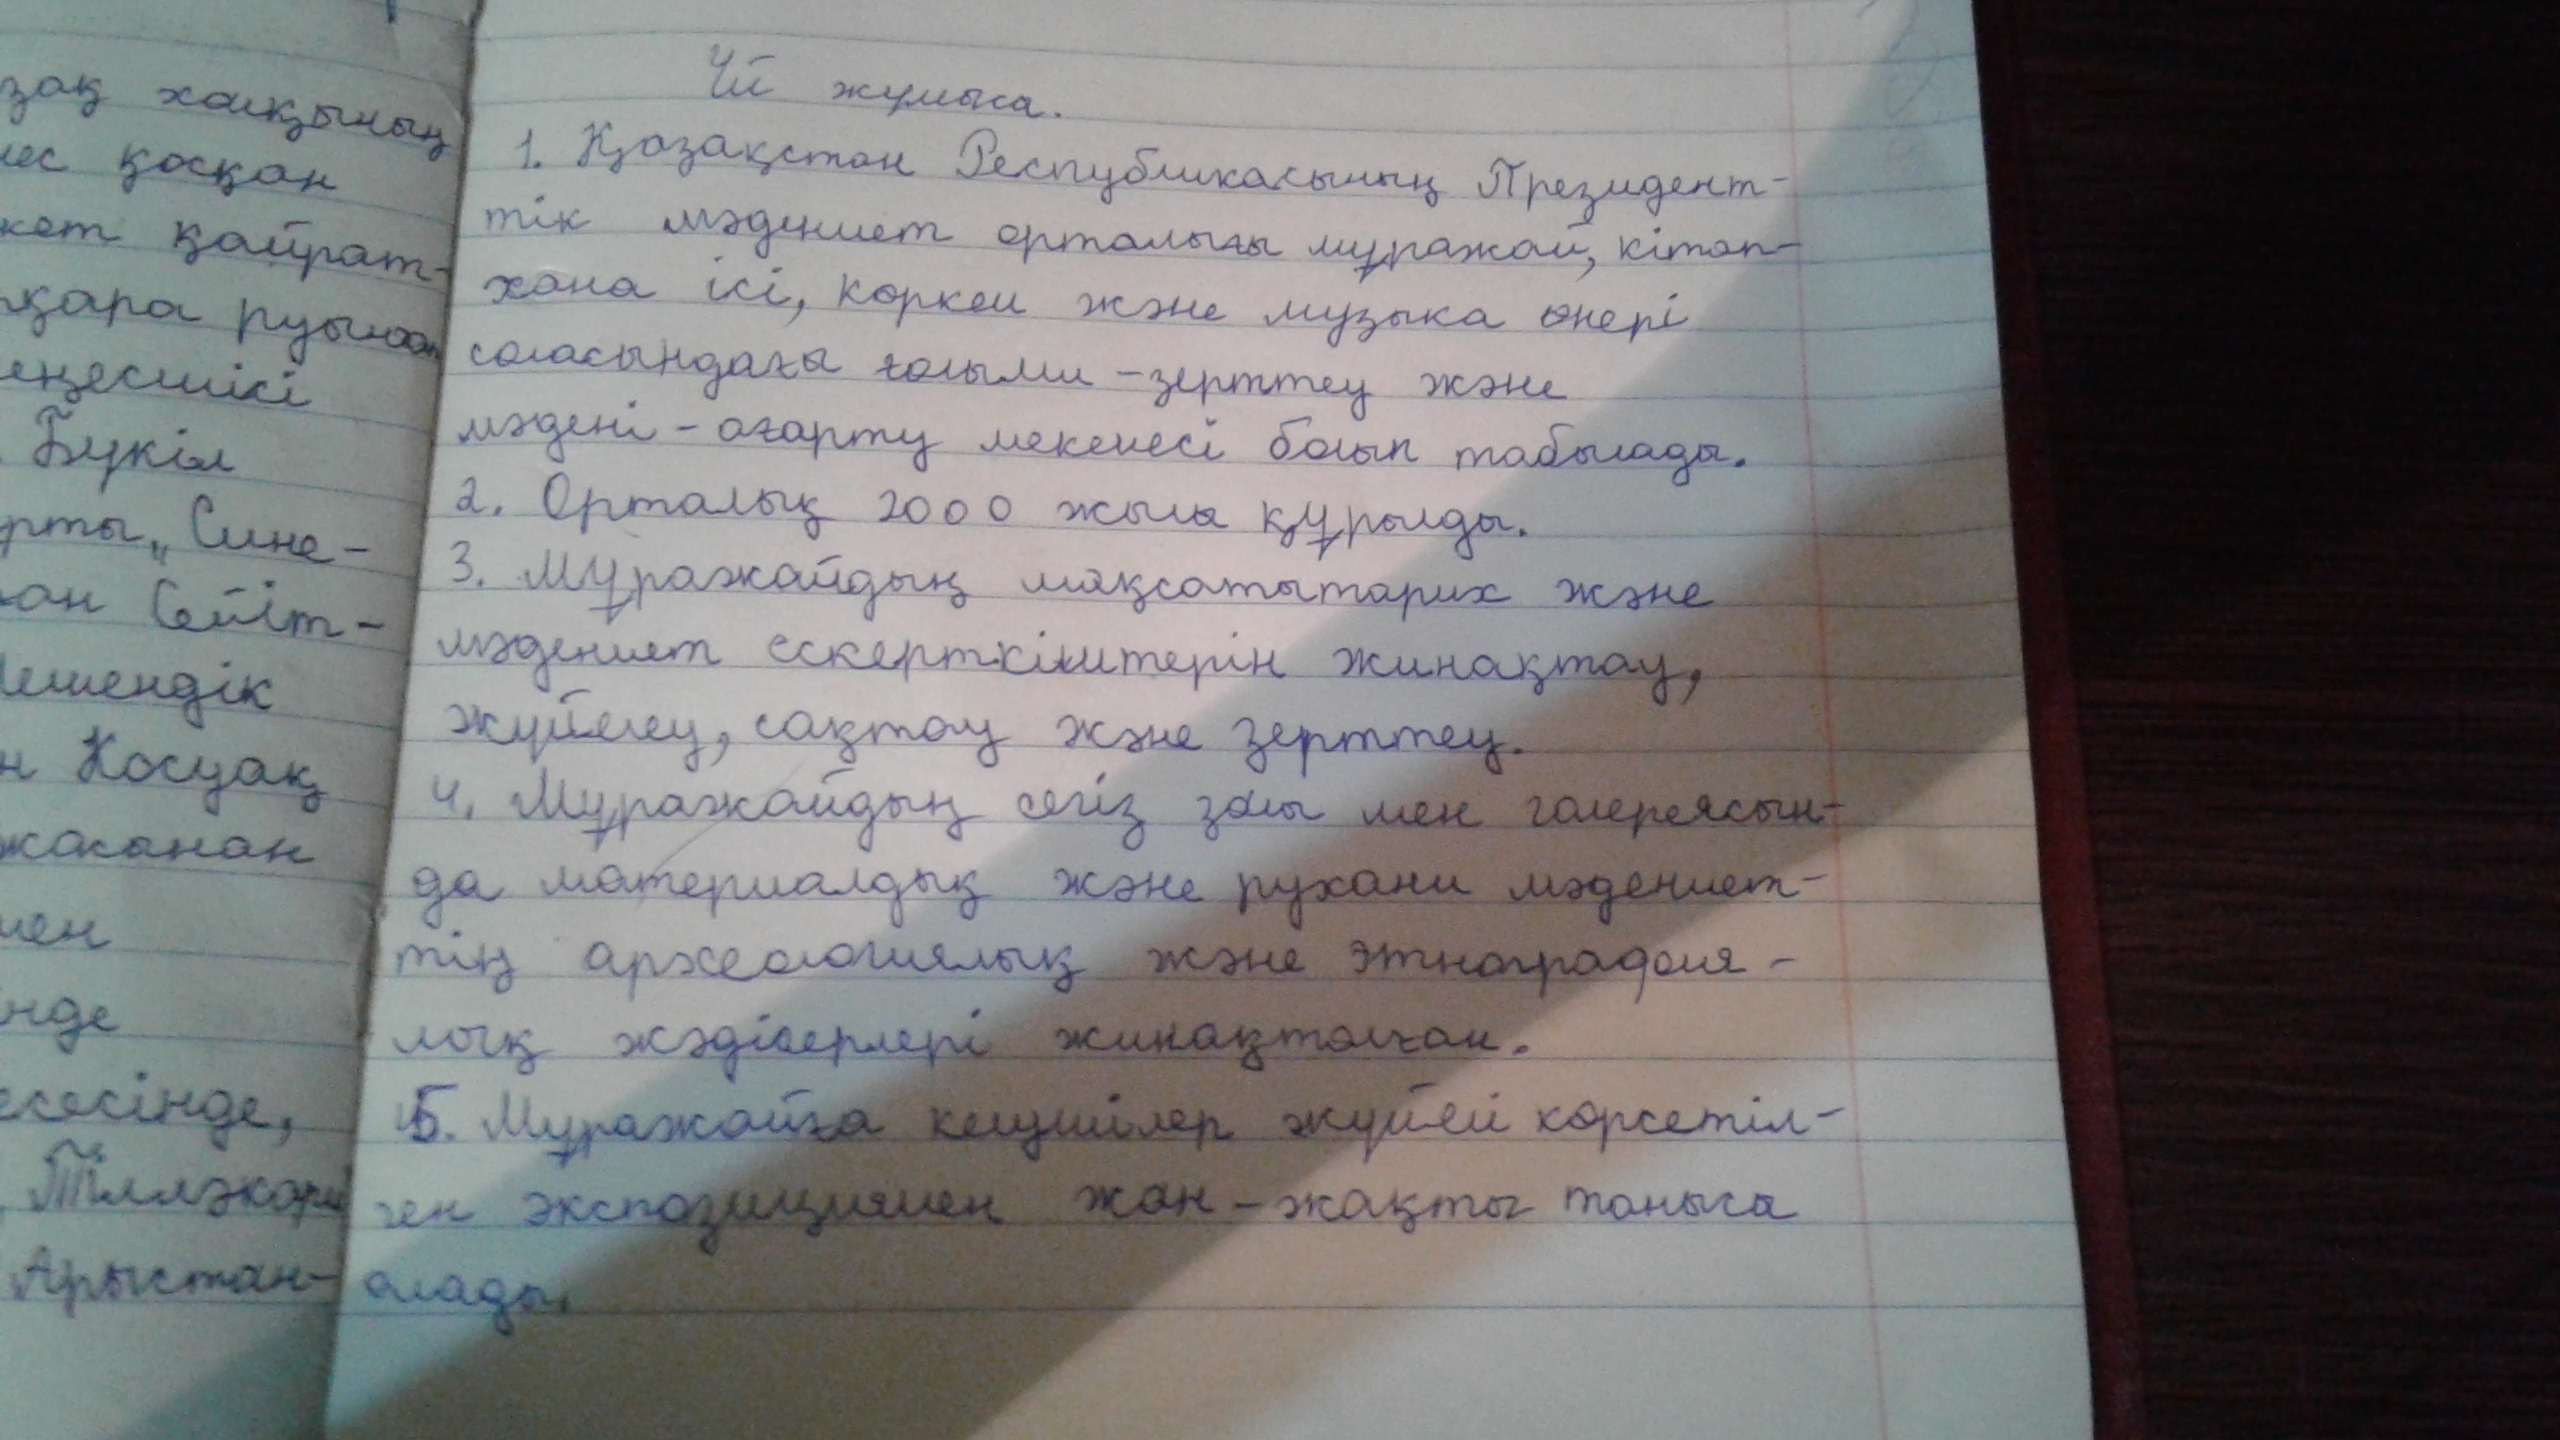 зақ халқының
лес қосқан
кет қайрат-
қара руынан
еңесшісі
Бүкіл
рты „Сине-
хан Сейіт-
Шешендік
н Қосуақ
жасанан
мен
інде
есесінде,
Тіллэкари
Арыстан-
Үй жумыса.
1. Қазақстан Республикасының Президент-
тік мәдениет орталығы мұражай, кітап-
хана ісі, көркем және музыка өнері
саласындағы ғалыми - зерттеу және
мәдені - ағарту мекемесі болып табылады.
2. Орталық 2000 жылы құрылды.
3. Мұражайдың мақсатытарих және
мәдениет ескерткіштерін жинақтау,
жүйелеу, сақтау және зерттеу.
4. Мұражайдың сегіз залы мен галереясын-
да материалдық және рухани мәдениет-
тің археологиялық және этнография-
лық жәдігерлері жинақталған.
5. Мұражайға келушілер жүйелі көрсетіл-
ген экспозициямен жан - жақты таныса
алады.